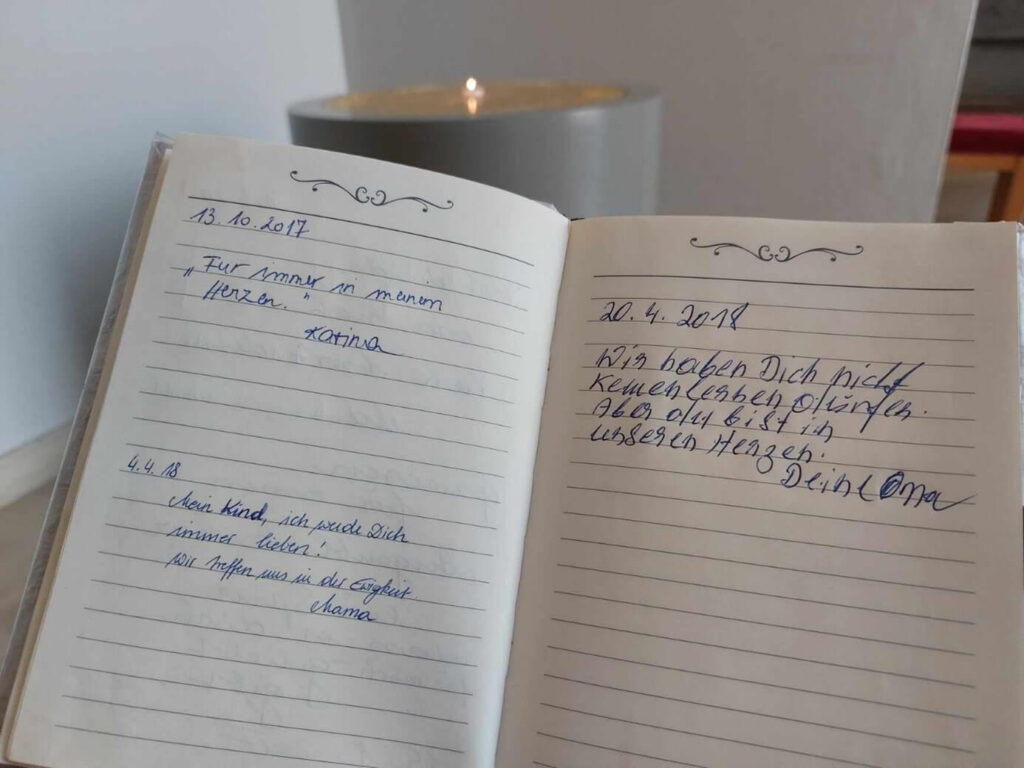 13.10.2017
„Für immer in meinem
Herzen."
Katinka
4.4.18
Mein Kind, ich werde Dich
immer lieben!
Wir treffen uns in der Ewigkeit
Mama
20.4.2018
Wir haben Dich nicht
kennenlernen dürfen.
Aber du bist in
unseren Herzen.
Deine Oma